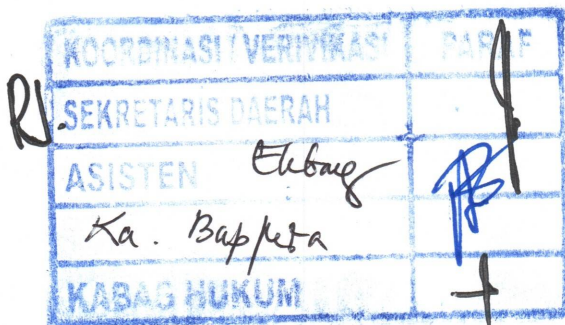 KOORDINASI / VERIVIKASI PARAF
Pj. SEKRETARIS DAERAH
ASISTEN Ekbang
Ka. Bappeda
KABAG HUKUM